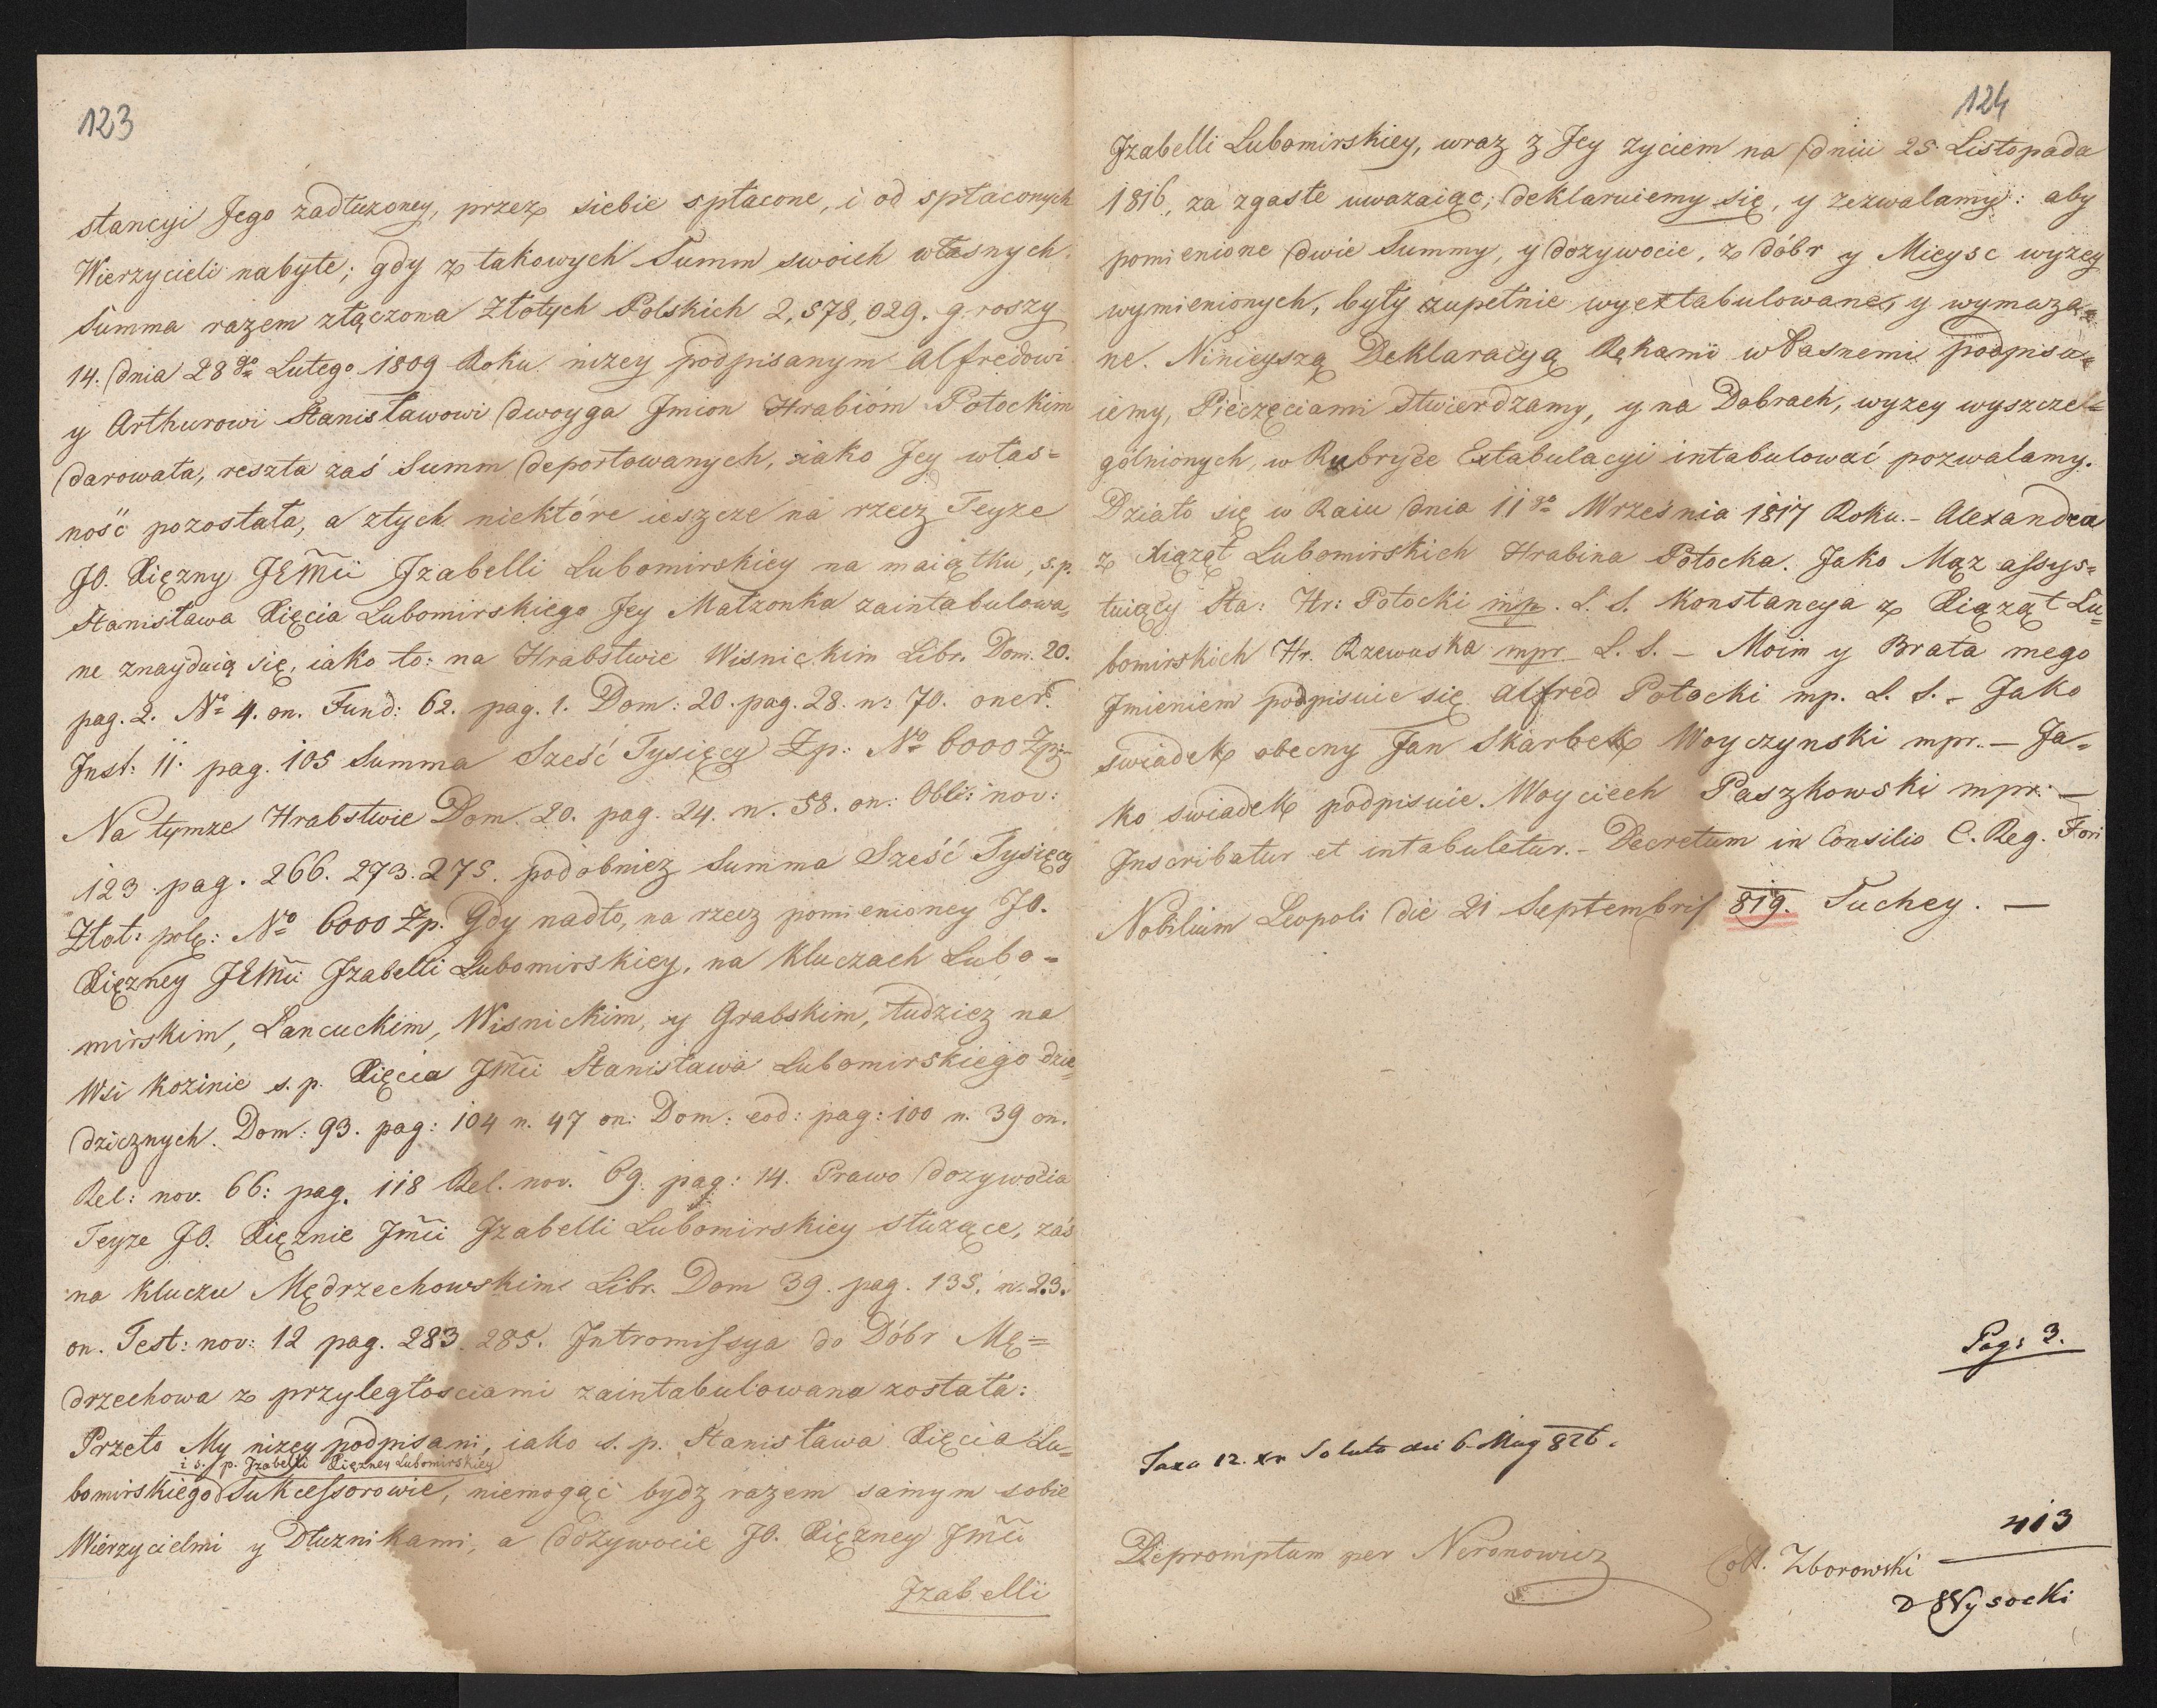 123
stancyi Jego zadłużoney, przez siebie spłacone, i od spłaconych
Wierzycieli nabyte; gdy z takowych Summ swoich własnych
Summa razem złączona Złotych Polskich 2,578,029. groszy
14. dnia 28go Lutego 1809 Roku niżey podpisanym Alfredowi
y Arthurowi Stanisławowi dwoyga Jmion Hrabiom Potockim
darowała, reszta zaś Summ deportowanych, iako Jey włas=
ność pozostała, a z tych niektóre ieszcze na rzecz Teyże
JO. Xiężny JEMci Jzabelli Lubomirskiey na maiątku, s.p.
Stanisława Xięcia Lubomirskiego Jey Małżonka zaintabulowa,
ne znayduią się, iako to: na Hrabstwie Wisnickim Libr. Dom. 20.
pag. 2. No 4. on. Fund: 62. pag. 1. Dom: 20. pag. 28. n: 70. oner.
Jnst: 11. pag. 105 Summa Sześć Tysięcy Zp: No 6000 Zp:
Na tymże Hrabstwie Dom. 20. pag. 24. n. 58. on: Obli: nov:
123 pag. 266. 273. 275. podobnież Summa Sześć Tysięcy
Złot: pols: No 6000 Zp. Gdy nadto, na rzecz pomienioney JO.
Xiężney JEMci Jzabelli Lubomirskiey, na Kluczach Lubo=
mirskim, Lancuckim, Wisnickim, y Grabskim, tudzież na
Wsi Kozinie s. p. Xięcia JMci Stanisława Lubomirskiego dzie,
dzicznych. Dom: 93. pag: 104 n. 47 on: Dom: eod: pag: 100 n. 39 on.
Rel: nov. 66: pag. 118 Rel. nov. 69. pag: 14. Prawo dożywocia
Teyże JO. Xiężnie Jmci Jzabelli Lubomirskiey służące, zaś
na Kluczu Mędrzechowskim Libr. Dom 39. pag. 135. n. 23.
on. Test: nov: 12 pag. 283. 285. Jntromissya do Dóbr Mę=
drzechowa z przyległosciami zaintabulowana została:
Przeto My niżey podpisani, iako s. p. Stanisława Xięcia Lu=
i s. p. Jzabelli Xiężney Lubomirskiey
bomirskiego Sukcessorowie, niemogąc bydz razem samym sobie
Wierzycielmi y Dłużnikami, a dożywocie JO. Xiężney Jmci
Jzabelli
124
Jzabelli Lubomirskiey, wraz z Jey życiem na dniu 25 Listopada
1816, za zgasłe uważaiąc; deklaruiemy się, y zezwalamy: aby
pomienione dwie Summy, y dożywocie, z dóbr y Mieysc wyżey
wymienionych, były zupełnie wyextabulowane, y wymaza=
ne. Ninieyszą Deklaracyą Rękami własnemi podpisu=
iemy, Pieczęciami stwierdzamy, y na Dobrach, wyżey wyszcze=
gólnionych, w Rubryce Extabulacyi intabulować pozwalamy.
Działo się w Raiu dnia 11go Września 1817 Roku. - Alexandra
z Xiążąt Lubomirskich Hrabina Potocka. Jako Mąż assys=
tuiący Sta: Hr: Potocki mp. L. S. Konstancya z Xiążąt Lu=
bomirskich Hr. Rzewuska mpr L. S. - Moim y Brata mego
Jmieniem podpisuie się Alfred Potocki mp. L. S. - Jako
swiadek obecny Jan Skarbek Woyczynski mpr. - Ja=
ko swiadek podpisuie. Woyciech Paszkowski mpr: -
Jnscribatur et intabuletur. - Decretum in Consilio C. Reg. Fori
Nobilium Leopoli die 21 Septembris 819. Tuchey. -
Pag: 3.
Taxa 12. xr Soluta die 6 May 826.
413
Depromptum per Neronowicz
Coll. Zborowski
Wysocki